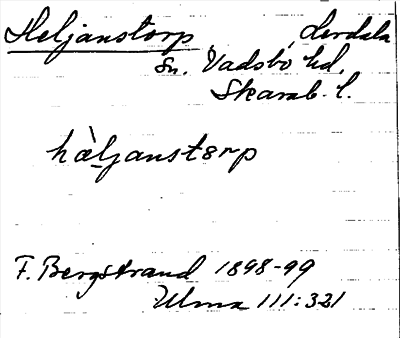 Heljanstorp Lerdala
sn. Vadsbo hd.
Skarab. l.
hàljanstorp
F. Bergstrand 1898-99
Ulma 111:321